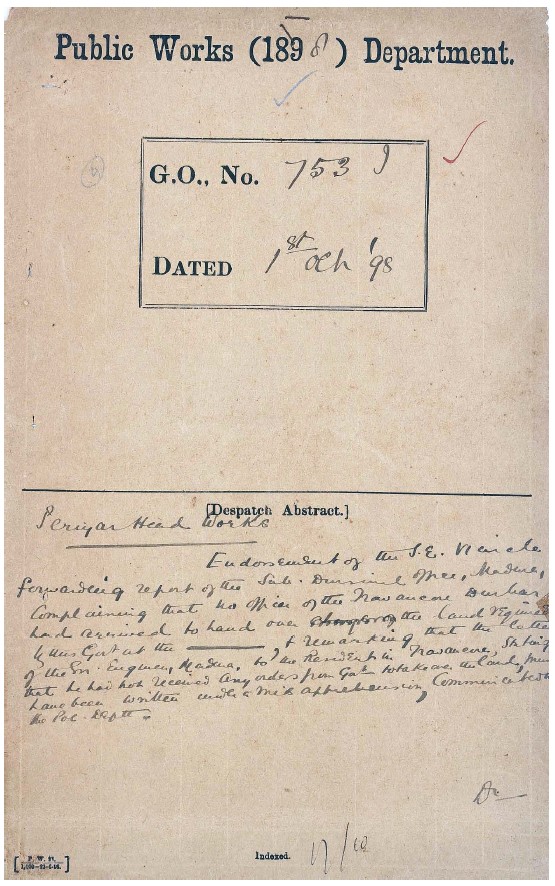 Public Works (1898) Department.
G.O., No. 753 I
DATED 1st Oct '98
[Despatch Abstract.]
Periyar Head Works
Endorsement of the S.E. V Circle
forwarding report of the Sub. Divisional officer, Madura,
Complaining that no officer of the Travancore Durbar
had arrived to hand over the land required
by this Govt at the & remarking that the letter
of the Engineer, Madura, to the Resident in Travancore, stating
that he had not received any orders from Govt to take over the land, must
have been written under a misapprehension, Communicated to
the Pol. Deptt.
Indexed.
[P. W. 97.